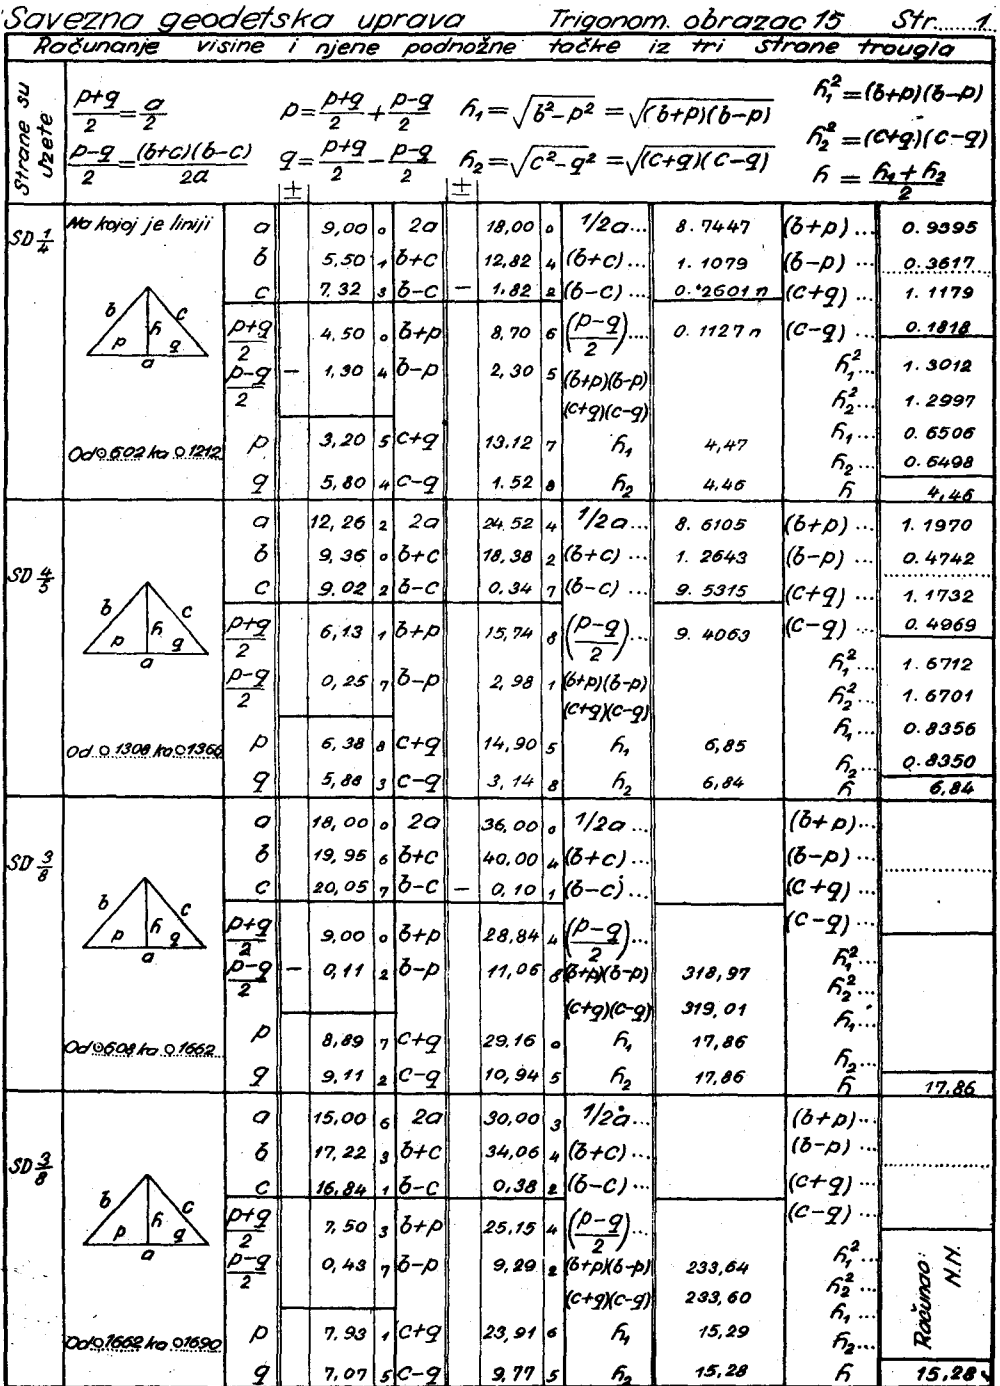 Savezna geodetska uprava Trigonom. obrazac 15 Str. 1
Računanje visine i njene podnožne tačke iz tri strane trougla
Strane su uzete
p+q/2 = a/2 p = p+q/2 + p-q/2 h₁ = √b²-p² = √(b+p)(b-p) h₁² = (b+p)(b-p)
p-q/2 = (b+c)(b-c)/2a q = p+q/2 - p-q/2 h₂ = √c²-q² = √(c+q)(c-q) h₂² = (c+q)(c-q)
h = h₁+h₂/2
± ±
SD 1/4 Na kojoj je liniji a 9,00 0 2a 18,00 0 1/2a... 8.7447 (b+p)... 0.9395
b 5,50 1 b+c 12,82 4 (b+c)... 1.1079 (b-p)... 0.3617
c 7.32 3 b-c - 1.82 2 (b-c)... 0.2601 n (c+q)... 1.1179
b h c p q a
p+q/2 4,50 0 b+p 8,70 6 (p-q/2)... 0.1127 n (c-q)... 0.1818
p-q/2 - 1,30 4 b-p 2,30 5 (b+p)(b-p) h₁²... 1.3012
(c+q)(c-q) h₂²... 1.2997
Od ⊙ 602 ka ⊙ 1212 p 3,20 5 c+q 13,12 7 h₁ 4,47 h₁... 0.6506
h₂... 0.6498
q 5,80 4 c-q 1.52 8 h₂ 4,46 h 4,46
SD 4/5 a 12,26 2 2a 24.52 4 1/2a... 8.6105 (b+p)... 1.1970
b 9,36 0 b+c 18,38 2 (b+c)... 1.2643 (b-p)... 0.4742
c 9.02 2 b-c 0.34 7 (b-c)... 9.5315 (c+q)... 1.1732
b h c p q a
p+q/2 6,13 1 b+p 15,74 8 (p-q/2)... 9.4063 (c-q)... 0.4969
p-q/2 0,25 7 b-p 2,98 1 (b+p)(b-p) h₁²... 1.6712
(c+q)(c-q) h₂²... 1.6701
Od ⊙ 1308 ka ⊙ 1366 p 6,38 8 c+q 14,90 5 h₁ 6,85 h₁... 0.8356
h₂... 0.8350
q 5,88 3 c-q 3,14 8 h₂ 6,84 h 6,84
SD 3/8 a 18,00 0 2a 36,00 0 1/2a... (b+p)...
b 19,95 6 b+c 40,00 4 (b+c)... (b-p)...
c 20,05 7 b-c - 0,10 1 (b-c)... (c+q)...
b h c p q a
p+q/2 9,00 0 b+p 28,84 4 (p-q/2)... (c-q)...
p-q/2 - 0,11 2 b-p 11,06 8 (b+p)(b-p) 318,97 h₁²...
(c+q)(c-q) 319,01 h₂²...
Od ⊙ 608 ka ⊙ 1662 p 8,89 7 c+q 29.16 0 h₁ 17,86 h₁...
h₂...
q 9,11 2 c-q 10,94 5 h₂ 17,86 h 17,86
SD 3/8 a 15,00 6 2a 30,00 3 1/2a... (b+p)...
b 17,22 3 b+c 34,06 4 (b+c)... (b-p)...
c 16,84 1 b-c 0,38 2 (b-c)... (c+q)...
b h c p q a
p+q/2 7,50 3 b+p 25,15 4 (p-q/2)... (c-q)...
p-q/2 0,43 7 b-p 9,29 2 (b+p)(b-p) 233,64 h₁²...
(c+q)(c-q) 233,60 h₂²...
Od ⊙ 1662 ka ⊙ 1690 p 7,93 1 c+q 23,91 6 h₁ 15,29 h₁...
h₂...
Računao: N.N.
q 7,07 5 c-q 9,77 5 h₂ 15,28 h 15,28